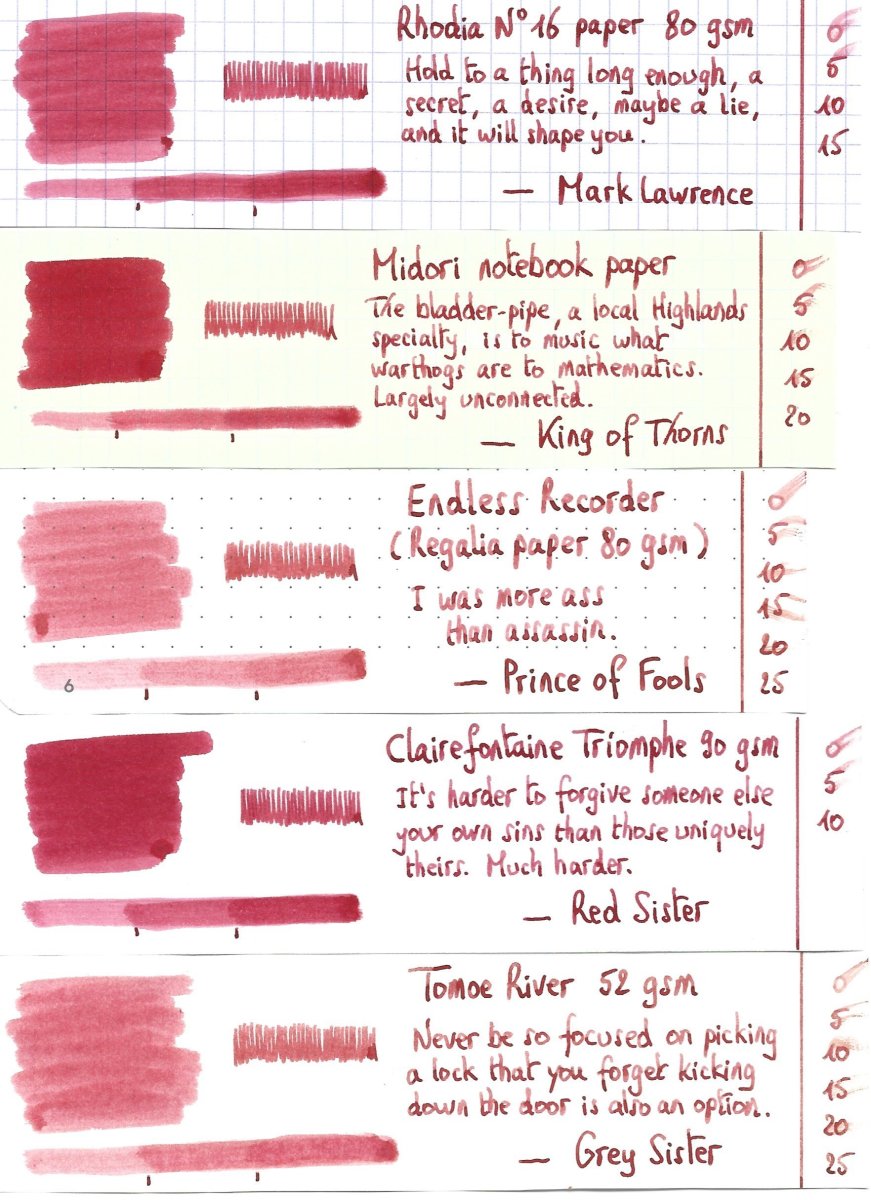 Rhodia N° 16 paper 80 gsm
Hold to a thing long enough, a
secret, a desire, maybe a lie,
and it will shape you.
— Mark Lawrence
0
5
10
15
Midori notebook paper
The bladder-pipe, a local Highlands
specialty, is to music what
warthogs are to mathematics.
Largely unconnected.
— King of Thorns
0
5
10
15
20
Endless Recorder
(Regalia paper 80 gsm)
I was more ass
than assassin.
— Prince of Fools
6
0
5
10
15
20
25
Clairefontaine Triomphe 90 gsm
It's harder to forgive someone else
your own sins than those uniquely
theirs. Much harder.
— Red Sister
0
5
10
Tomoe River 52 gsm
Never be so focused on picking
a lock that you forget kicking
down the door is also an option.
— Grey Sister
0
5
10
15
20
25